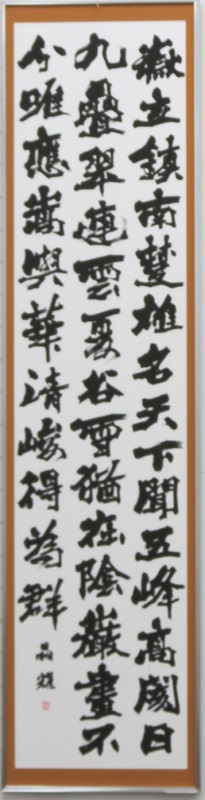 嶽立鎮南楚雄名天下聞五峰高閡日
九疊翠連雲夏谷雪猶在陰巖晝不
分唯應嵩與華清峻得為群